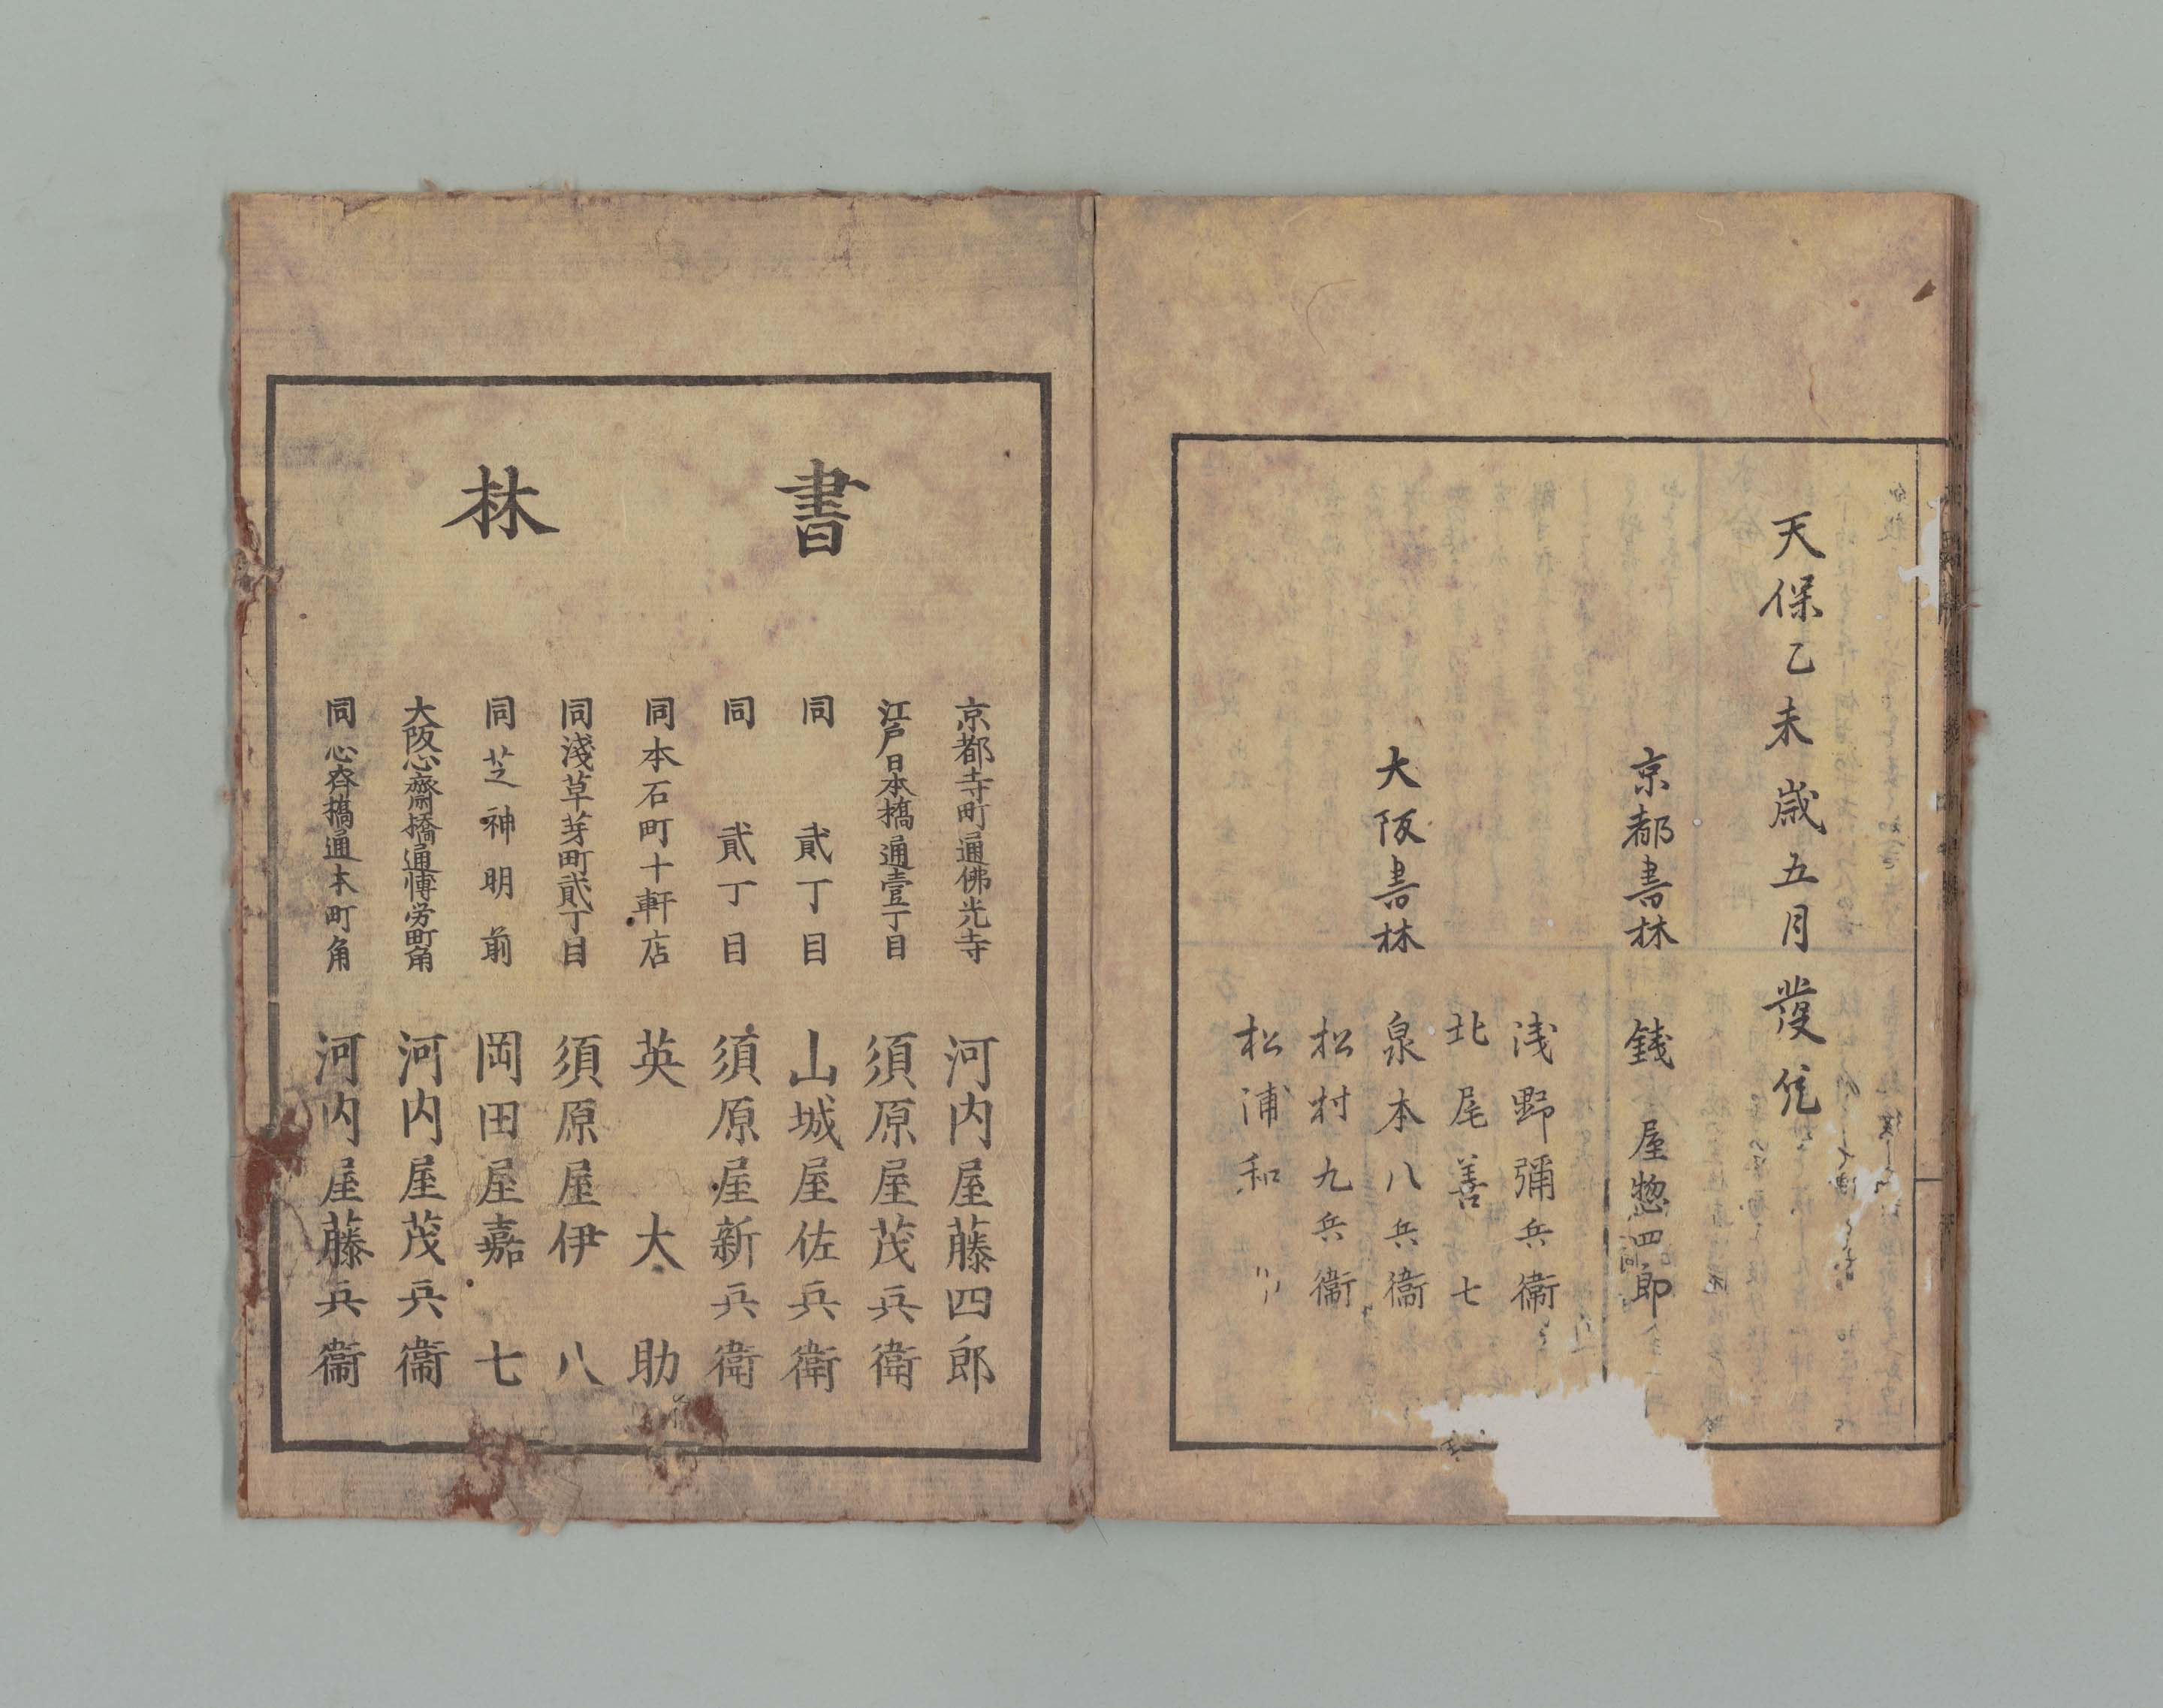 天保乙未歳五月發兌
京都書林 錢屋惣四郎
大阪書林
浅野彌兵衞
北尾善七
泉本八兵衞
松村九兵衞
松浦和
書林
京都寺町通佛光寺 河内屋藤四郎
江戸日本橋通壹丁目 須原屋茂兵衛
同 貳丁目 山城屋佐兵衛
同 貳丁目 須原屋新兵衛
同本石町十軒店 英大助
同淺草茅町貳丁目 須原屋伊八
同芝神明前 岡田屋嘉七
大阪心齋橋通博労町角 河内屋茂兵衞
同心斉橋通本町角 河内屋藤兵衞